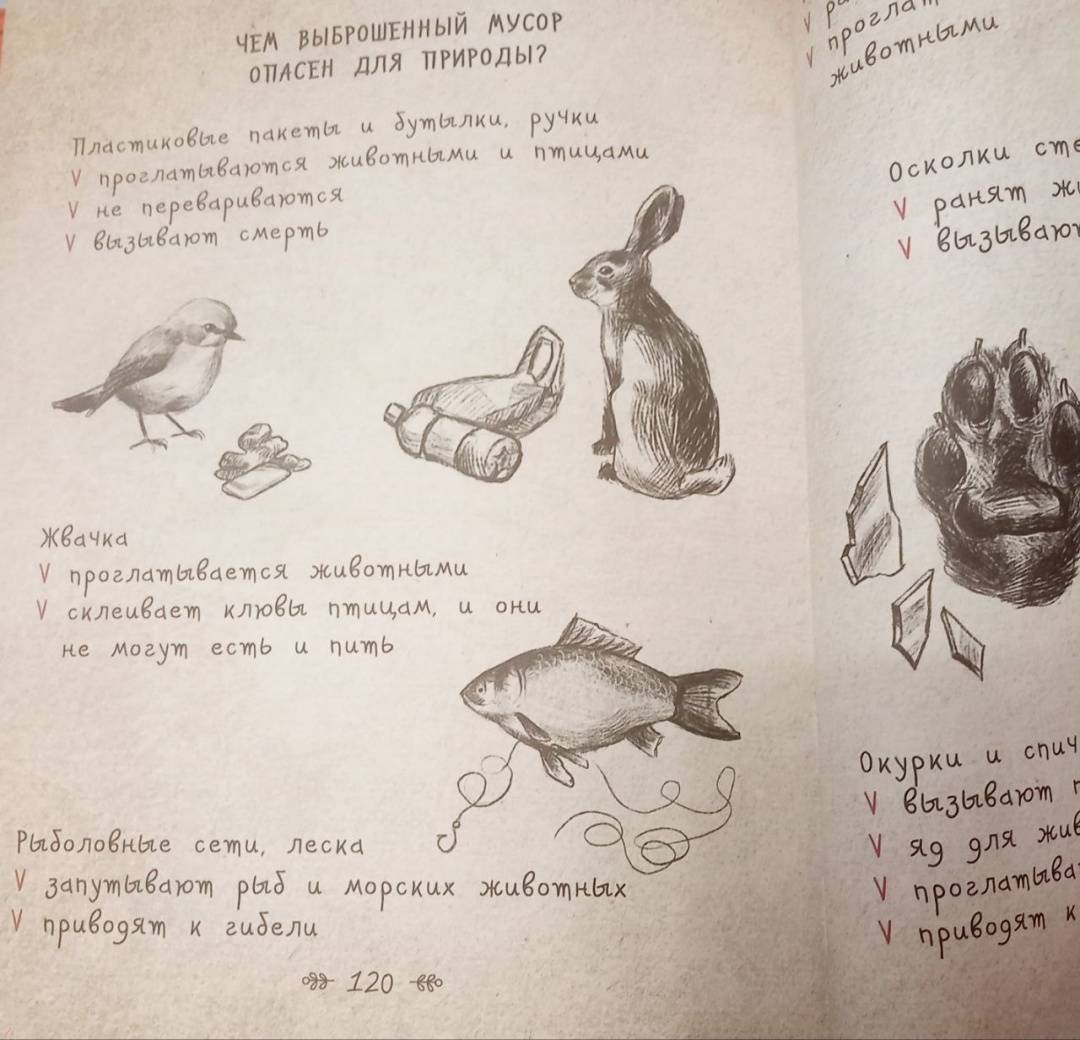 ЧЕМ ВЫБРОШЕННЫЙ МУСОР
ОПАСЕН ДЛЯ ПРИРОДЫ?
Пластиковые пакеты и бутылки, ручки
V проглатываются животными и птицами
V не перевариваются
V вызывают смерть
Жвачка
V проглатывается животными
V склеивает клювы птицам, и они
не могут есть и пить
Рыболовные сети, леска
V запутывают рыб и морских животных
V приводят к гибели
120
V
V
животными
Осколки
V ранят
V
Окурки и
V вызывают
V яд для
V
V приводят к